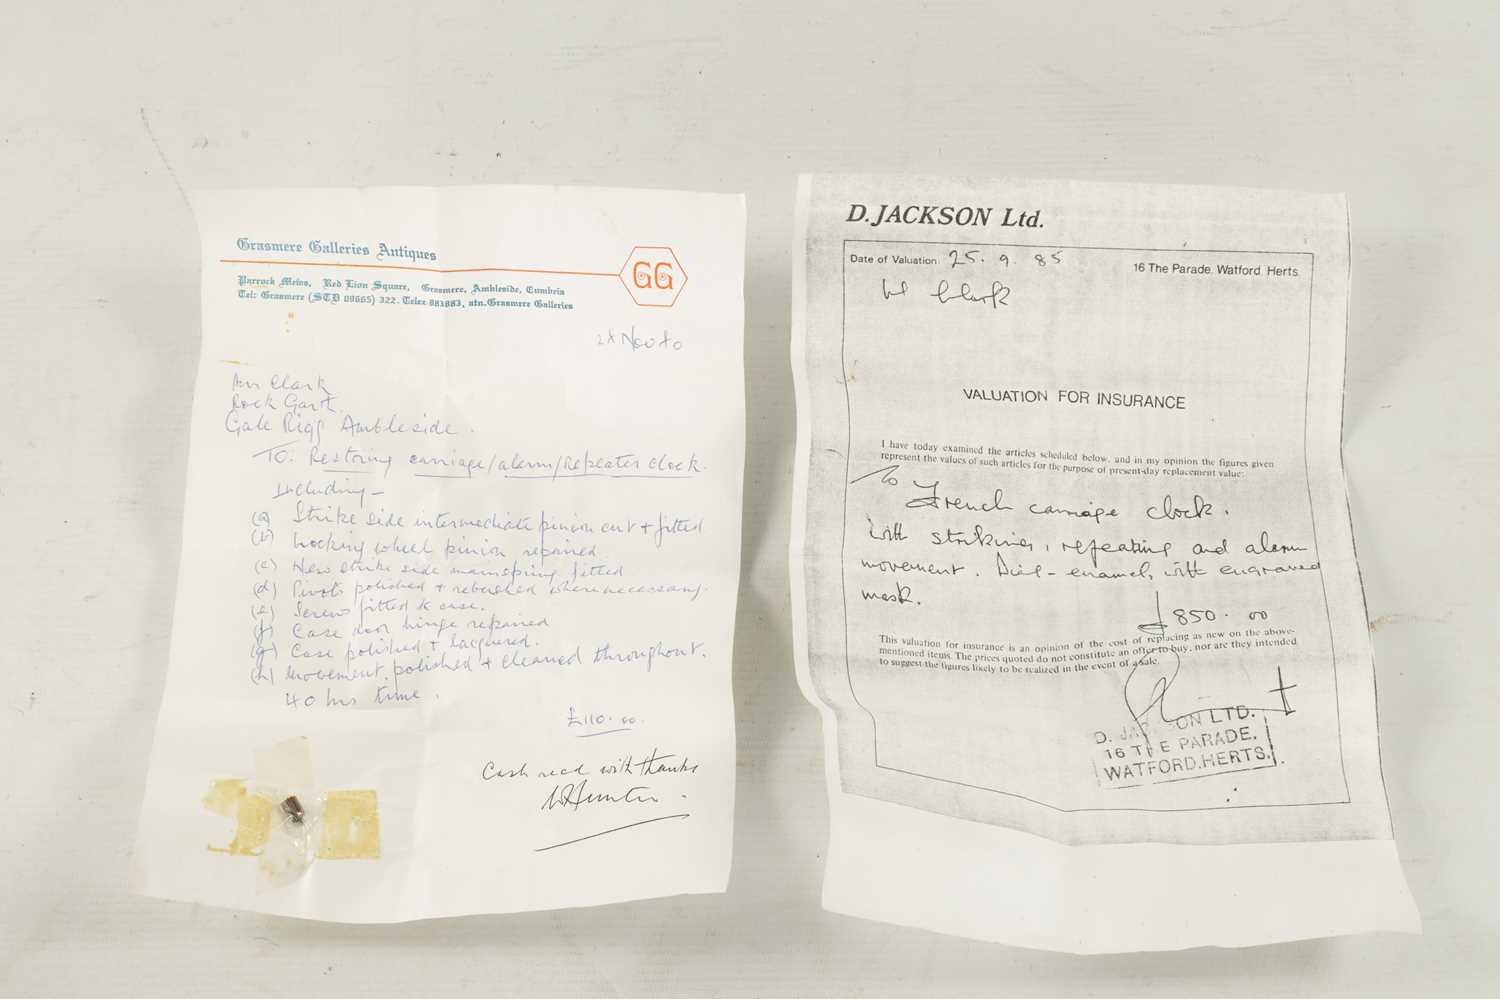 Grasmere Galleries Antiques
GG
Parrock Mews, Red Lion Square, Grasmere, Ambleside, Cumbria
Tel: Grasmere (STD 09665) 322. Telex 881883, atn. Grasmere Galleries
28 Nov 80
Clark
Rock Garth
Gale Rigg Ambleside.
To: Restoring carriage/alarm/repeater clock.
Including –
(a) Strike side intermediate pinion cut + fitted
(b) Locking wheel pinion repaired
(c) New strike side mainspring fitted
(d) Pivots polished + rebushed where necessary.
(e) Screws fitted to case.
(f) Case door hinge repaired
(g) Case polished + lacquered.
(h) Movement, polished + cleaned throughout.
40 hrs time.
£110.00.
Cash recd with thanks
Hunter.
D. JACKSON Ltd.
Date of Valuation: 25. 9. 85
16 The Parade, Watford Herts.
Clark
VALUATION FOR INSURANCE
I have today examined the articles scheduled below, and in my opinion the figures given
represent the values of such articles for the purpose of present-day replacement value:
To French carriage clock.
with striking, repeating and alarm
movement. Dial – enamel, with engraved
mask.
£850.00
This valuation for insurance is an opinion of the cost of replacing as new on the above-
mentioned items. The prices quoted do not constitute an offer to buy, nor are they intended
to suggest the figures likely to be realized in the event of a sale.
D. JACKSON LTD.
16 THE PARADE.
WATFORD.HERTS.